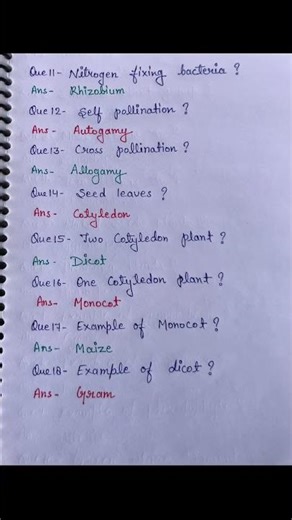 Que 11- Nitrogen fixing bacteria ?
Ans- Rhizobium
Que 12- Self pollination ?
Ans- Autogamy
Que 13- Cross pollination ?
Ans- Allogamy
Que 14- Seed leaves ?
Ans- Cotyledon
Que 15- Two Cotyledon plant ?
Ans- Dicot
Que 16- One Cotyledon plant ?
Ans- Monocot
Que 17- Example of Monocot ?
Ans- Maize
Que 18- Example of dicot ?
Ans- Gram